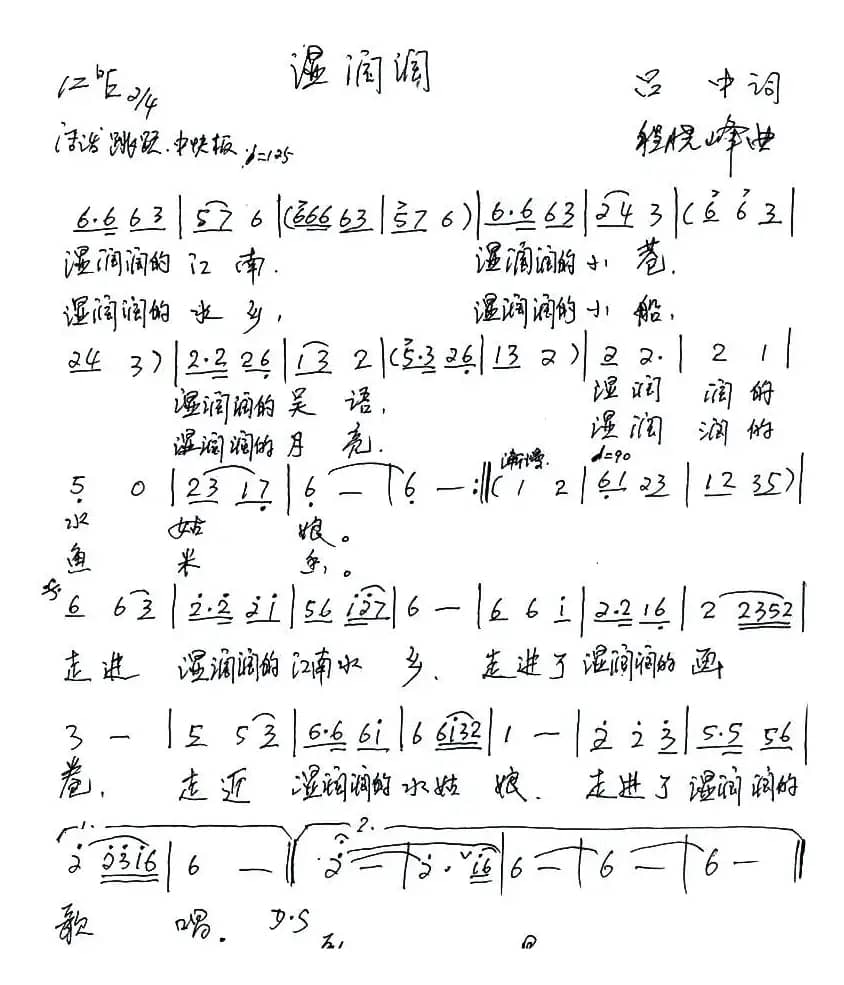 湿润润
1=♭E 2/4
吕 中词
活泼 跳跃.中快板 ♩=125
程晓峰曲
6·6 6 3 | 5 7 6 | (6 6 6 6 3 | 5 7 6) | 6·6 6 3 | 2 4 3 | (6 6 3 |
湿润润的 江 南. 湿润润的小 巷.
湿润润的 水 乡, 湿润润的小 船,
2 4 3) | 2·2 2 6 | 1 3 2 | (5·3 2 6 | 1 3 2) | 2 2· | 2 1 |
湿润润的 吴 语, 湿 润 润 的
湿润润的 月 亮. 湿 润 润 的
渐慢 ♩=90
5 0 | 2 3 1 7 | 6 — | 6 — :‖ (1 2 | 6 1 2 3 | 1 2 3 5) |
水 姑 娘。
鱼 米 乡。
6 6 3 | 2·2 2 1 | 5 6 1 2 7 | 6 — | 6 6 1 | 2·2 1 6 | 2 2 3 5 2 |
走 进 湿润润的 江南水 乡. 走 进了 湿润润的 画
3 — | 5 5 3 | 6·6 6 1 | 6 6 1 3 2 | 1 — | 2 2 3 | 5·5 5 6 |
卷, 走 近 湿润润的 水姑 娘. 走 进了 湿润润的
1. 2.
2 2 3 1 6 | 6 — ‖ 2 — | 2· 1 6 | 6 — | 6 — | 6 — ‖
歌 唱. D.S